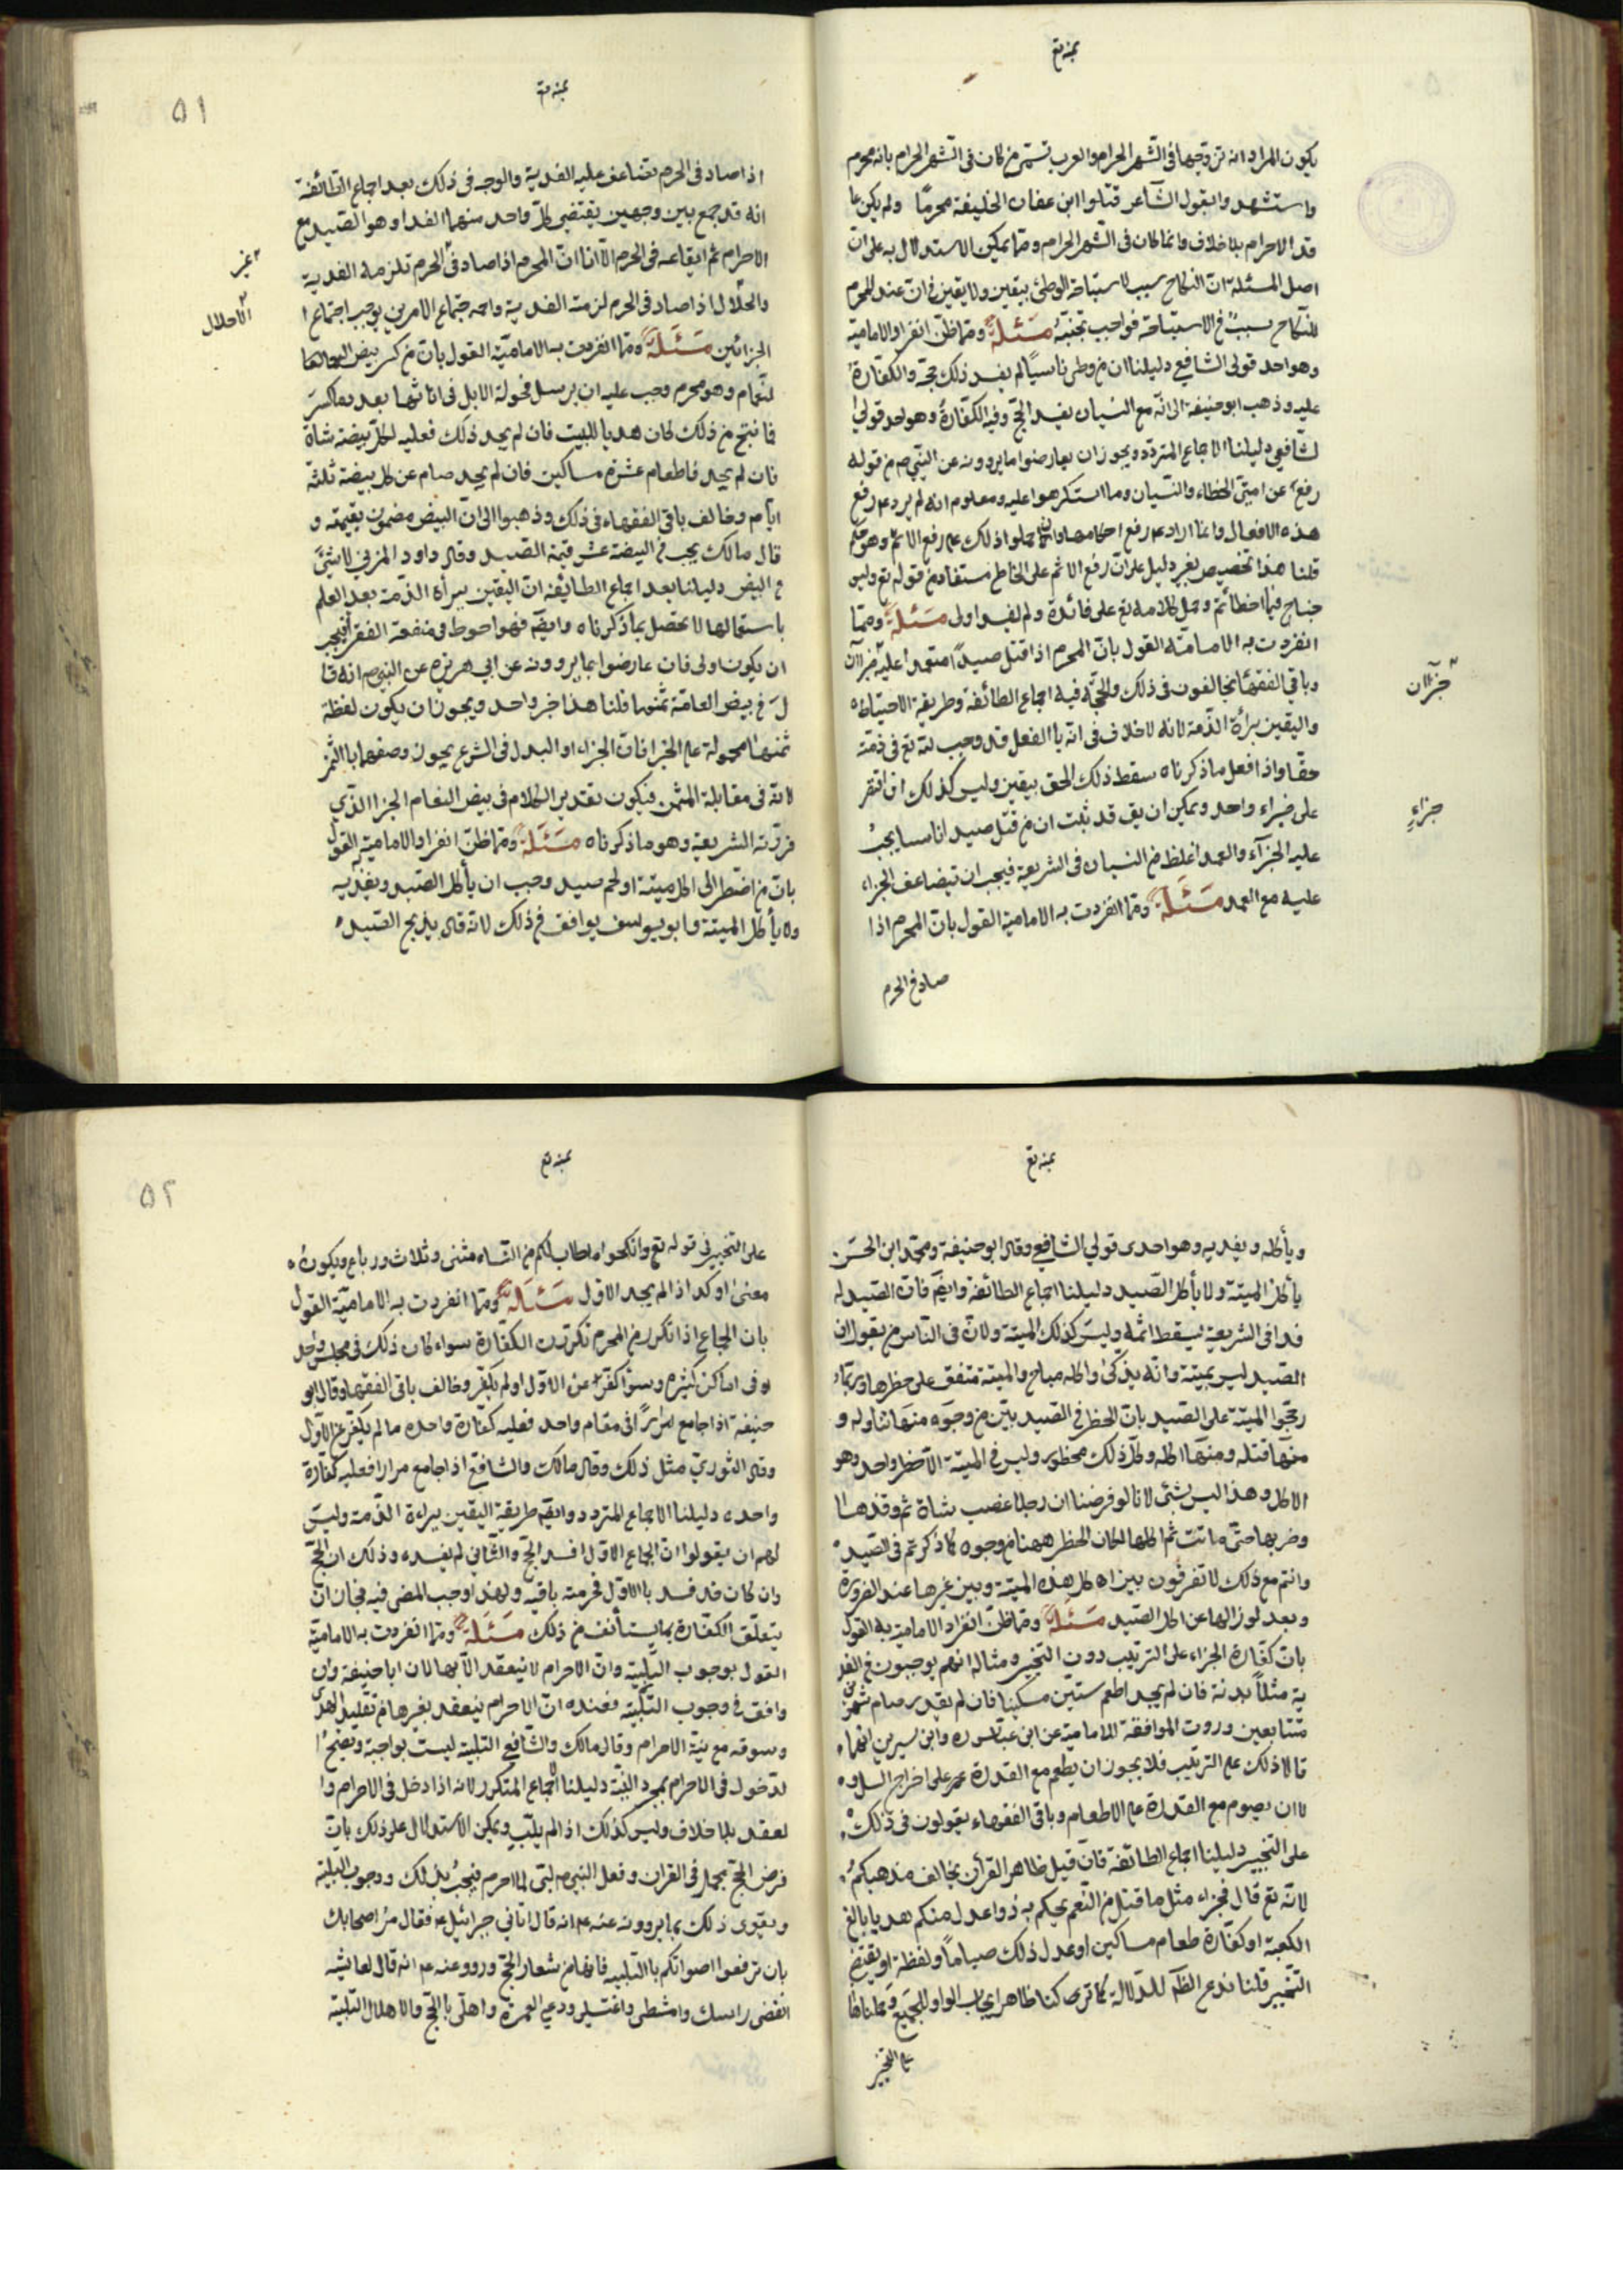 بمنه تع
يكون المراد انه تزوجها فى الشهر الحرام والعرب تسمى من كان فى الشهر الحرام بانه محرم
واستشهدوا بقول الشاعر قتلوا ابن عفان الخليفة محرمًا ولم يكن عا
قد الاحرام بلا خلاف وانما كان فى الشهر الحرام ومما يمكن الاستدلال به على ان
اصل المسئلة ان النكاح سبب لاستباحة الوطئ بيقين ولا يقين فى ان عند المحرم
للنكاح سببٌ فى الاستباحة فواجب تجنبه مَسْئلةٌ ومما ظن انفراد الامامية
وهو احد قولى الشافعي دليلنا ان من وطى ناسيًا لم يفسد ذلك حجه والكفارة
عليه وذهب ابو حنيفة الى انّه مع النسيان يفسد الحج وفيه الكفارة وهو احد قولى
لشافعى دليلنا الاجماع المتردد ويجوز ان يعارضوا ما يردونه عن النبي ص من قوله
رفع عن امتى الخطاء والنسيان وما استكرهوا عليه ومعلوم انه لم يرد ع رفع
هذه الافعال وانما اراد ع رفع احكامها وانما حملوا ذلك على رفع الاثم وهو حكم
قلنا هذا تخصيص بغير دليل على ان رفع الاثم على الخاطى مستفاد من قوله تع وليس
جناح فيما اخطأتم وحمل كلامه تع على فائدة ولم يفد اولى مَسْئلةٌ ومما
انفردت به الامامية القول بان المحرم اذا قتل صيدًا متعمدا عليه جزاآن
وباقى الفقهاء يخالفون فى ذلك والحجّة فيه اجماع الطائفة وطريقة الاحتياط
واليقين ببرأة الذمة لانه لا خلاف فى انه باالفعل قد وجب لله تع فى ذمته
حقا واذا فعل ما ذكرناه سقط ذلك الحق بيقين وليس كذلك ان اقتصر
على جزاء واحد ويمكن ان يق قد ثبت ان من قتل صيدا ناسيا يجب
عليه الجزآء والعمد اغلظ من النسيان فى الشريعة فيجب ان يتضاعف الجزاء
عليه مع العمد مَسْئَلةٌ ومما انفردت به الامامية القول بان المحرم اذا
صاد فى الحرم
جزآان
جزاءٍ
بمنه تع
٥١
اذا صاد فى الحرم تضاعف عليه الفدية والوجه فى ذلك بعد اجماع الطائفة
انه قد جمع بين وجهين يقتضى كل واحد منهما الفدا وهو الصيد مع
الاحرام ثم ايقاعه فى الحرم الا انا ان المحرم اذا صاد فى الحرم تلزمه الفدية
والحلال اذا صاد فى الحرم لزمته الفدية واجتماع الامرين يوجب اجتماع ا
الجزائين مَسْئَلةٌ ومما انفردت به الامامية القول بان من كسر بيض
لنعام وهو محرم وجب عليه ان يرسل فحولة الابل فى اناثها بعدد ما كسر
فما نتج من ذلك كان هديا للبيت فان لم يجد ذلك فعليه لكل بيضة شاة
فان لم يجد فاطعام عشرة مساكين فان لم يجد صام عن كل بيضة ثلثة
ايام وخالف باقى الفقهاء فى ذلك وذهبوا الى ان البيض مضمون بقيمته و
قال مالك يجب فى البيضة عشر قيمة الصيد وقال داود المزني لا شئَ
فى البيض دليلنا بعد اجماع الطايفة ان اليقين ببرأة الذمة بعد العلم
باشتغالها لا تحصل بما ذكرناه وايضًا فهو احوط فى منفعة الفقراء فيجب
ان يكون اولى فان عارضوا بما يروونه عن ابي هريره عن النبي ص انه قا
لَ فى بيض النعامة ثمنها قلنا هذا خبر واحد ويجوز ان يكون لفظة
ثمنها محمولة على الجزا فان الجزاء او البدل فى الشرع يجوز وصفهما باالثمن
لانه فى مقابلة المثمن فيكون تقدير الكلام فى بيض النعام الجزا الذي
قررته الشريعة وهو ما ذكرناه مَسْئَلةٌ ومما ظن انفراد الامامية به القول
بان من اضطر الى اكل ميتة او لحم صيد وجب ان يأكل الصيد ويفديه
ولا يأكل الميتة وابو يوسف يوافق فى ذلك لانه قال يذبح الصيد
الاحلال
بمنه تع
ويأكله ويفديه وهو احدى قولي الشافعي وقال ابو حنيفة ومحمد ابن الحسن
يأكل الميتة ولا يأكل الصيد دليلنا اجماع الطائفة وايضًا فان الصيد له
فدا فى الشريعة يسقط اثمه وليس كذلك الميتة ولان فى الناس من يقول ان
الصيد ليس بميتة وانه يذكى واكله مباح والميتة متفق على حظرها وربما
رجحوا الميتة على الصيد بان الحظر فى الصيد بيّن من وجوه منها تناوله و
منها قتله ومنها اكله وكل ذلك محظور وليس فى الميتة الا حظر واحد وهو
الاكل وهذا ليس بشئ لانا لو فرضنا ان رجلا غصب شاة ثم وقذها
وضربها حتى ماتت ثم اكلها لكان الحظر ههنا من وجوه كما ذكرتم فى الصيد
وانتم مع ذلك لا تفرقون بين اكل هذه الميتة وبين غيرها عند الضرورة
وبعد لوزالها عن اكل الصيد مَسْئَلةٌ ومما ظن انفراد الامامية به القول
بان كفارة الجزاء على الترتيب دون التخيير ومثاله انهم يوجبون فى الفد
ية مثلًا بدنة فان لم يجد اطعم ستين مسكينا فان لم يقدر صام شهرين
متتابعين وروت الموافقة للامامية عن ابن عباس وابن سيرين انهما
قالا ذلك على الترتيب فلا يجوز ان يطعم مع القدرة على اخراج المثل و
لا ان يصوم مع القدرة على الاطعام وباقى الفقهاء يقولون فى ذلك
على التخيير دليلنا اجماع الطائفة فان قيل ظاهر القرآن يخالف مذهبكم
لانه تع قال فجزاء مثل ما قتل من النعم يحكم به ذوا عدل منكم هديا بالغ
الكعبة او كفارة طعام مساكين او عدل ذلك صيامًا ولفظة او يقتضى
التخيير قلنا ندع الظاهر للدلالة كما تركنا ظاهر ايجاب الواو للجمع وحملناها
على التخيير
بمنه تع
٥٢
على التخيير فى قوله تع وانكحوا ما طاب لكم من النساء مثنى وثلاث ورباع ويكون
معنى او كذا اذا لم يجد الاول مَسْئَلةٌ ومما انفردت به الامامية القول
بان الجماع اذا تكرر من المحرم تكررت الكفارة سواء كان ذلك فى مجلس واحد
او فى اماكن كثيره وسوا كفر عن الاول او لم يكفر وخالف باقى الفقهاء وقال ابو
حنيفة اذا جامع مرارًا فى مقام واحد فعليه كفارة واحده ما لم يكفر عن الاول
وقال الثوري مثل ذلك وقال مالك والشافعي اذا جامع مرارا فعليه كفارة
واحده دليلنا الاجماع المتردد وايضًا طريقة اليقين ببراءة الذمة وليس
لهم ان يقولوا ان الجماع الاول افسد الحج والثاني لم يفسده وذلك ان الحج
وان كان قد فسد باالاول فحرمته باقية ولهذا وجب المضى فيه فجاز ان
يتعلق الكفارة بما يستأنف من ذلك مَسْئَلةٌ ومما انفردت به الامامية
القول بوجوب التلبية وان الاحرام لا ينعقد الا بها لان ابا حنيفة وان
وافق فى وجوب التلبية فعنده ان الاحرام ينعقد بغيرها من تقليد الهدى
وسوقه مع نية الاحرام وقال مالك والشافعي التلبية ليست بواجبة ويصح ا
لدخول فى الاحرام بمجرد النية دليلنا الاجماع المتكرر لانه اذا دخل فى الاحرام وا
نعقد بلا خلاف وليس كذلك اذا لم يلبِّ ويمكن الاستدلال على ذلك بان
فرض الحج مجمل فى القران وفعل النبي ص لبى لما احرم فيجب بذلك وجوب التلبية
ويقوى ذلك بما يروونه عنه ع انه قال اتاني جبرائيل ع فقال مُر اصحابك
بان ترفعوا اصواتكم باالتلبية فانها من شعار الحج ورووا عنه ع انه قال لعايشه
انفضى راسك وامشطى واغتسلى ودعى العمرة واهلّى باالحج والاهلال التلبية